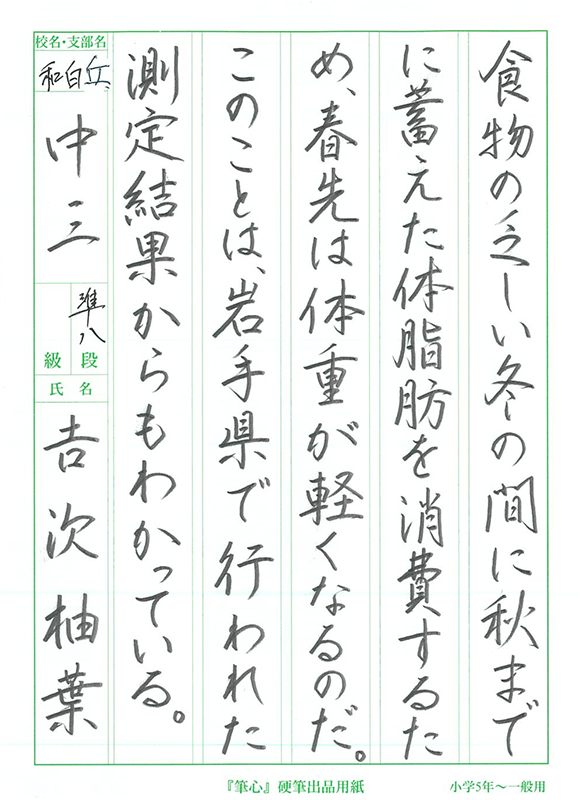 食物の乏しい冬の間に秋まで
に蓄えた体脂肪を消費するた
め、春先は体重が軽くなるのだ。
このことは、岩手県で行われた
測定結果からもわかっている。
校名・支部名
和白丘
中三
準八
段
級
氏名
吉次柚葉
『筆心』硬筆出品用紙
小学5年～一般用